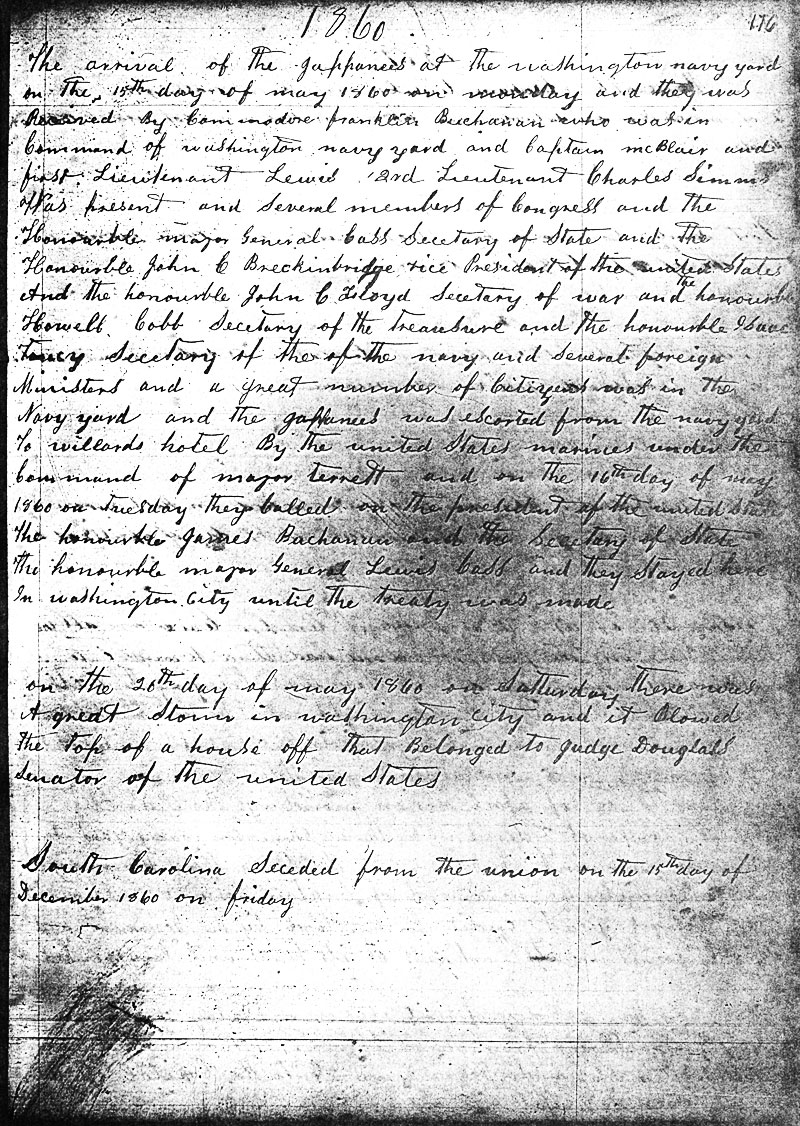 1860
176
The arrival of the Jappanees at the washington navy yard
on the 15th day of may 1860 on monday and they was
Received By Commodore franklin Buchanan who was in
Command of washington navy yard and Captain mcBlair and
first Lieutenant Lewis 2rd Lieutenant Charles Simms
Was present and Several members of Congress and the
Honourble major General Cass Secetary of State and the
Honourble John C Breckinbridge vice President of the united States
And the honourble John C Floyd Secetary of war and the honourble
Howell Cobb Secetary of the treasure and the honourble Isaac
Toucy Secetary of the of the navy and Several foreign
Ministers and a great number of Citizens was in the
Navy yard and the Jappanees was escorted from the navy yard
To willards hotel By the united States marines under the
Command of major terrett and on the 16th day of may
1860 on tuesday they Called on the president of the united States
The honourble James Buchanan and the Secetary of State
The honourble major General Lewis Cass and they Stayed here
In washington City until the treaty was made
on the 26th day of may 1860 on Satturday there was
A great Storm in washington City and it Blowed
the top of a house off that Belonged to Judge Douglass
Senator of the united States
South Carolina Seceded from the union on the 15th day of
December 1860 on friday